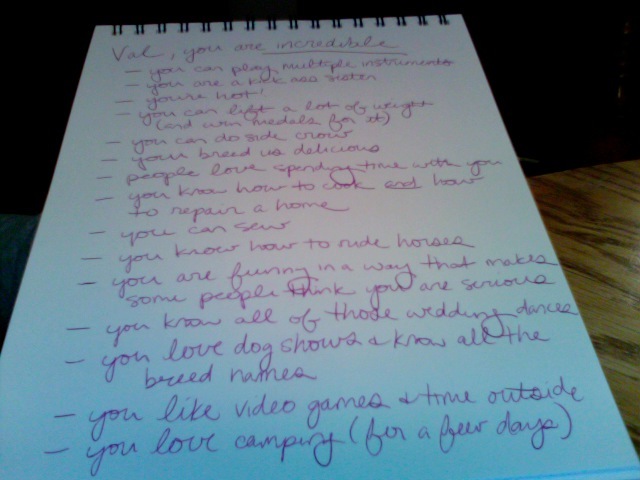 Val, you are incredible
- you can play multiple instruments
- you are a kick ass sister
- you're hot!
- you can lift a lot of weight
(and win medals for it)
- you can do side crow
- your bread is delicious
- people love spending time with you
- you know how to cook and how
to repair a home
- you can sew
- you know how to ride horses
- you are funny in a way that makes
some people think you are serious
- you know all of those wedding dances
- you love dog shows & know all the
breed names
- you like video games & time outside
- you love camping (for a few days)